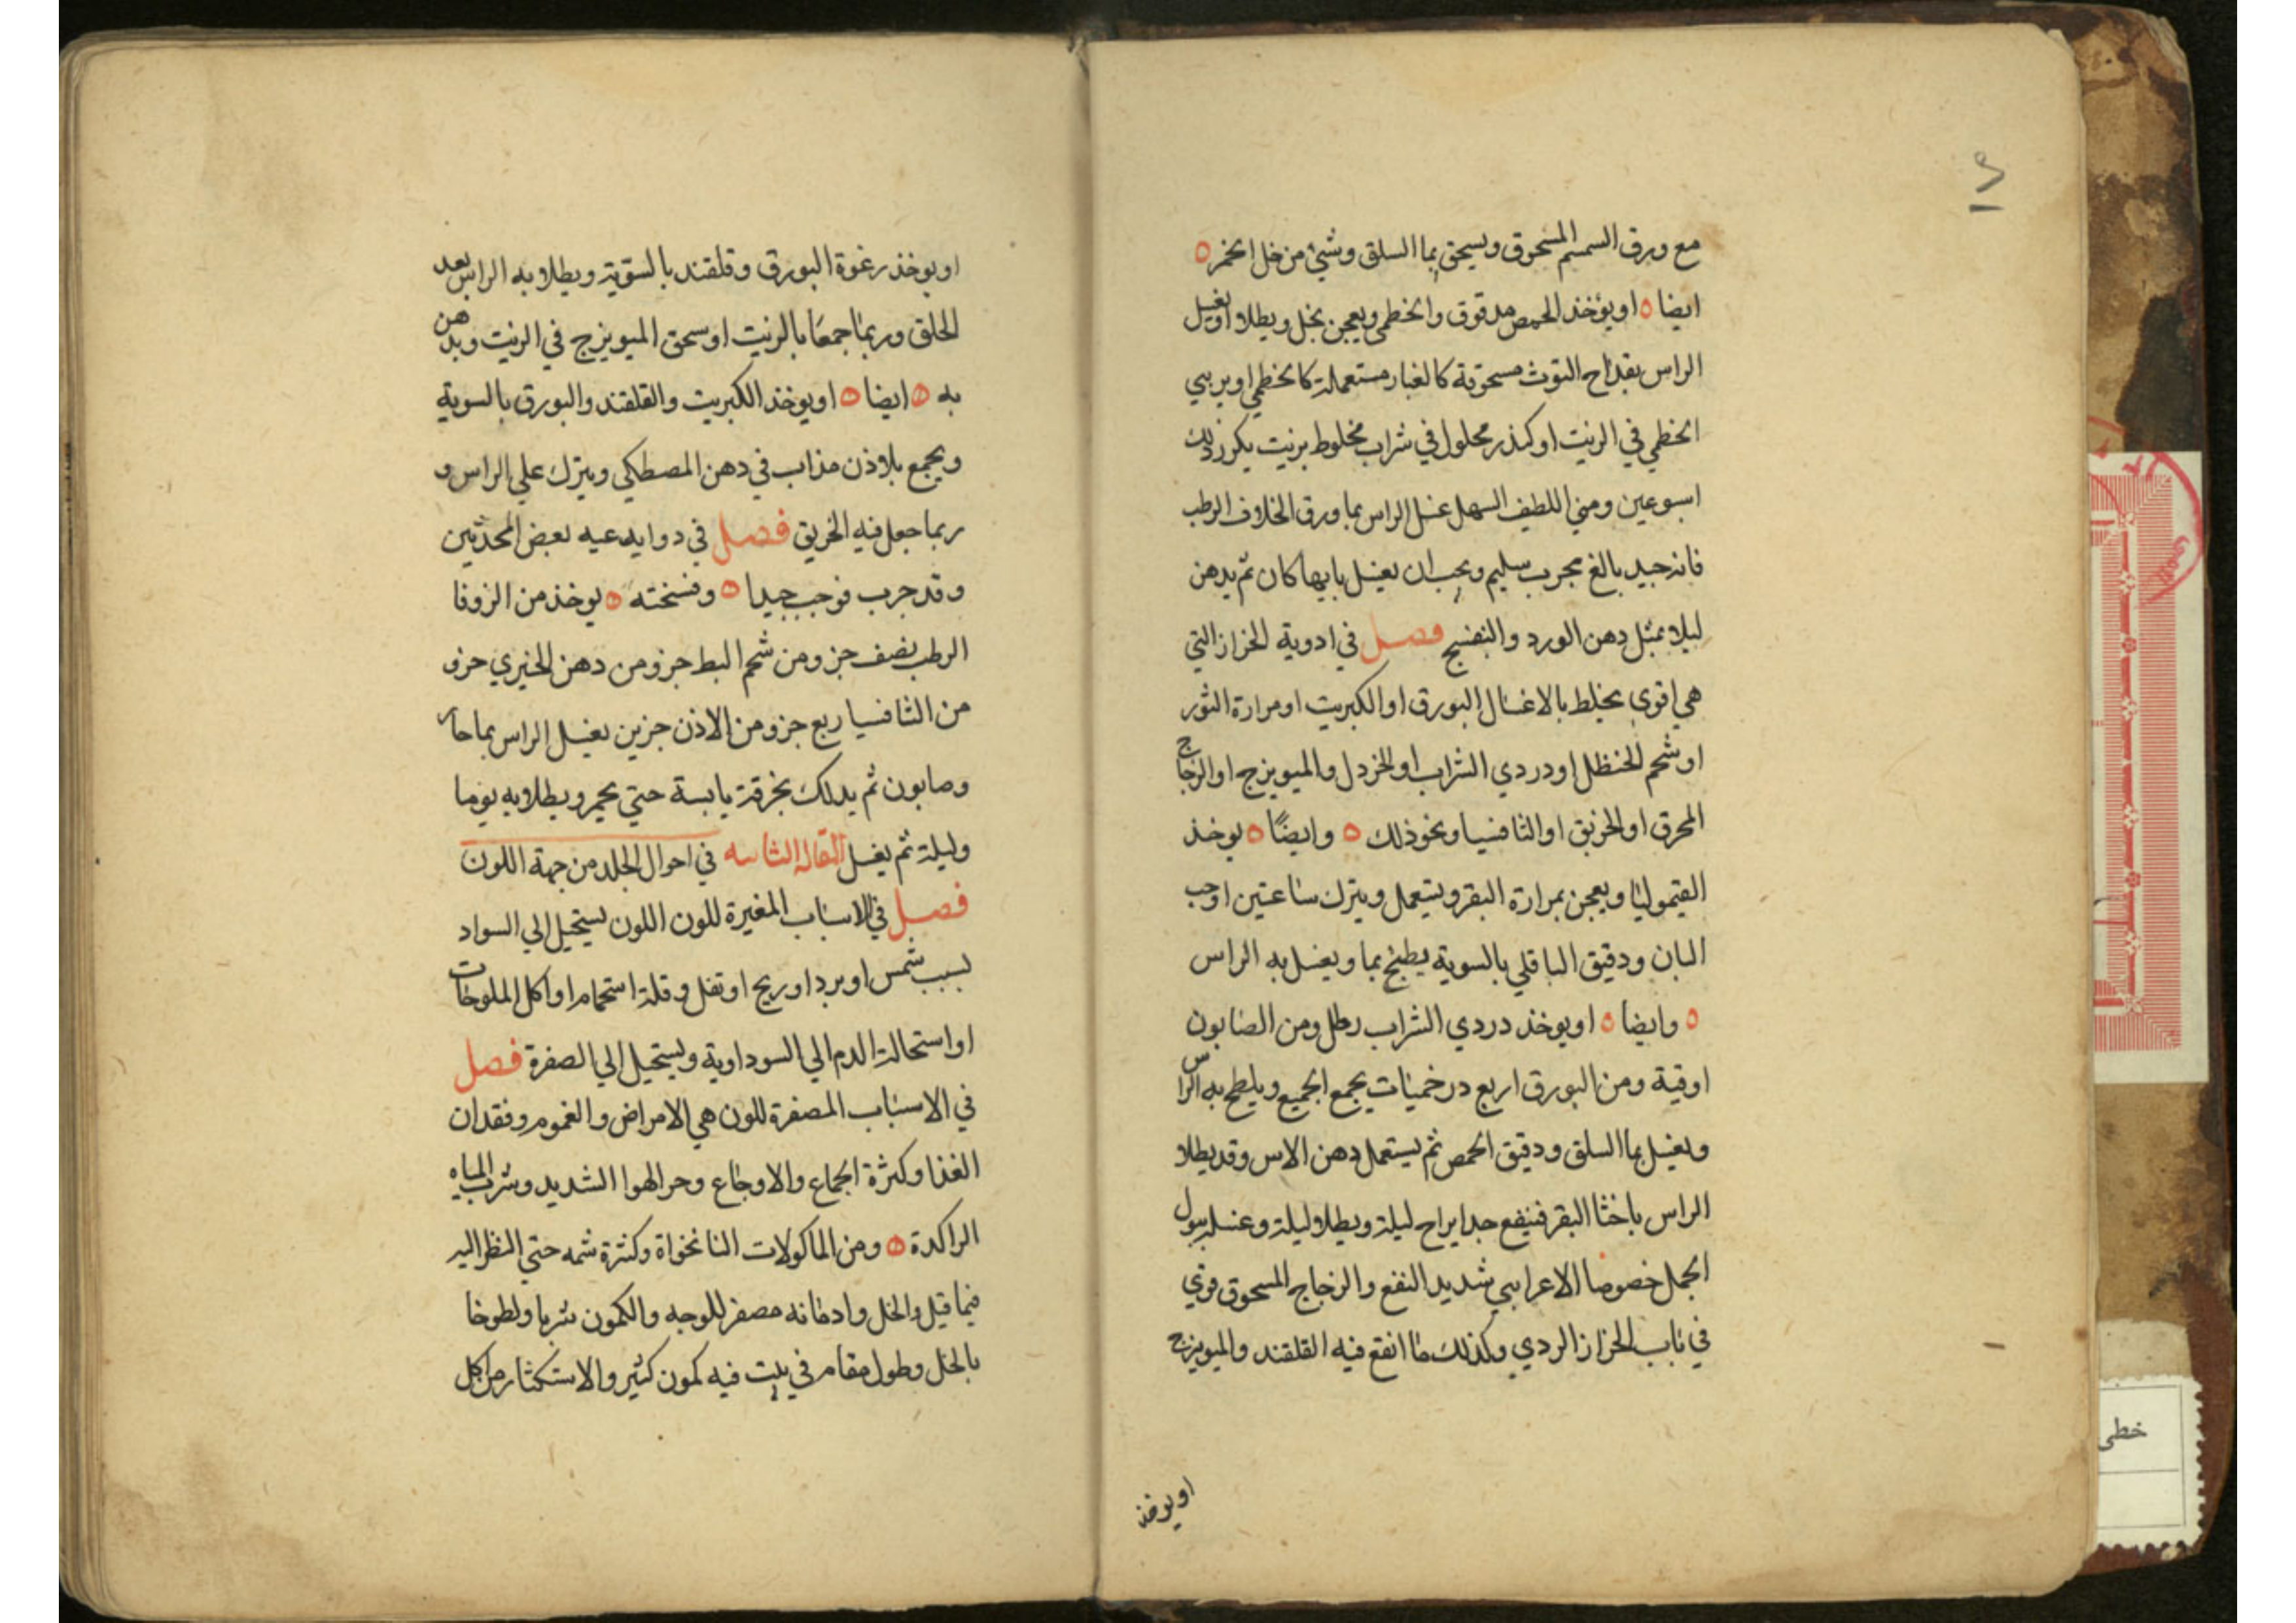 مع ورق السمسم المسحوق ويسحق بما السلق وشئ من خل الخمر ه
ايضا ه او يؤخذ الحمص مدقوق والخطمي ويعجن بخل ويطلا او يغسل
الراس بقداح التوث مسحوقة كالغبار مستعملة كالخطمي او يربي
الخطمي في الزيت او كندر محلول في شراب مخلوط بزيت يكرر ذلك
اسبوعين ومن اللطيف السهل غسل الراس بما ورق الخلاف الرطب
فانه جيد بالغ مجرب سليم ويجب ان يغسل بايها كان ثم يدهن
ليلا بمثل دهن الورد والبنفسج فصل في ادوية الحزاز التي
هي اقوي يخلط بالاغسال البورق او الكبريت او مرارة الثور
او شحم الحنظل او دردي الشراب او الخردل والميويزج او الزجاج
المحرق او الخربق او الثافسيا ونحو ذلك ه وايضًا ه يوخذ
القيموليا ويعجن بمرارة البقر ويستعمل ويترك ساعتين او حب
البان ودقيق الباقلي بالسوية يطبخ بما ويغسل به الراس
ه وايضا ه او يوخذ دردي الشراب رطل ومن الصابون
اوقية ومن البورق اربع درخميات يجمع الجميع ويلطخ به الراس
ويغسل بما السلق ودقيق الحمص ثم يستعمل دهن الاس وقد يطلا
الراس باخثا البقر فينفع جدا يراح ليلة ويطلا ليلة وغسله ببول
الجمل خصوصا الاعرابي شديد النفع والزجاج المسحوق قوي
في باب الحزاز الردي وكذلك ما انقع فيه القلقند والميويزج
او يوخذ
او يوخذ رغوة البورق وقلقند بالسوية ويطلا به الراس بعد
الحلق وربما جمعا بالزيت او سحق الميويزج في الزيت ويدهن
به ه ايضا ه او يوخذ الكبريت والقلقند والبورق بالسوية
ويجمع بلاذن مذاب في دهن المصطكي ويترك علي الراس و
ربما جعل فيه الخربق فصل في دوا يدعيه بعض المحدثين
وقد جرب فوجب جيدا ه ونسخته ه يوخذ من الزوفا
الرطب نصف جز ومن شحم البط جز ومن دهن الخيري جزو
من الثافسيا ربع جز ومن الاذن جزين يغسل الراس بما حار
وصابون ثم يدلك بخرقة يابسة حتي يحمر ويطلا به يوما
وليلة ثم يغسل المقاله الثانيه في احوال الجلد من جهة اللون
فصل في الاسباب المغيرة للون اللون يستحيل الي السواد
بسبب شمس او برد او ريح او تفل وقلة استحمام او اكل الملوحات
او استحالة الدم الي السوداوية ويستحيل الي الصفرة فصل
في الاسباب المصفرة للون هي الامراض والغموم وفقدان
الغذا وكثرة الجماع والاوجاع وحر الهوا الشديد وشرب المياه
الراكدة ه ومن الماكولات النانخواة وكثرة شمه حتي النظر اليه
فيما قيل والخل وادمانه مصفر للوجه والكمون شربا ولطوخا
بالخل وطول مقام في بيت فيه كمون كثير والاستكثار من اكل
خطی